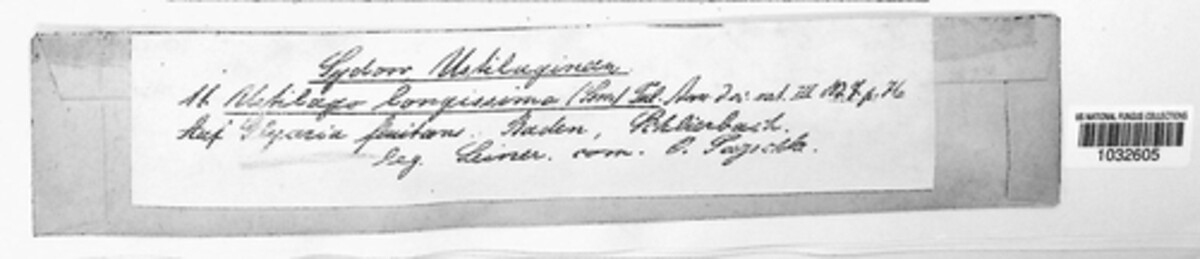 Sydow Ustilagineen
11. Ustilago longissima (Sow) Tul. Ann Sci. nat. III 1847. p. 76
Auf Glyceria fluitans. Baden, Schlierbach.
leg. Leiner. com. O. Pazschke.
US NATIONAL FUNGUS COLLECTIONS
1032605